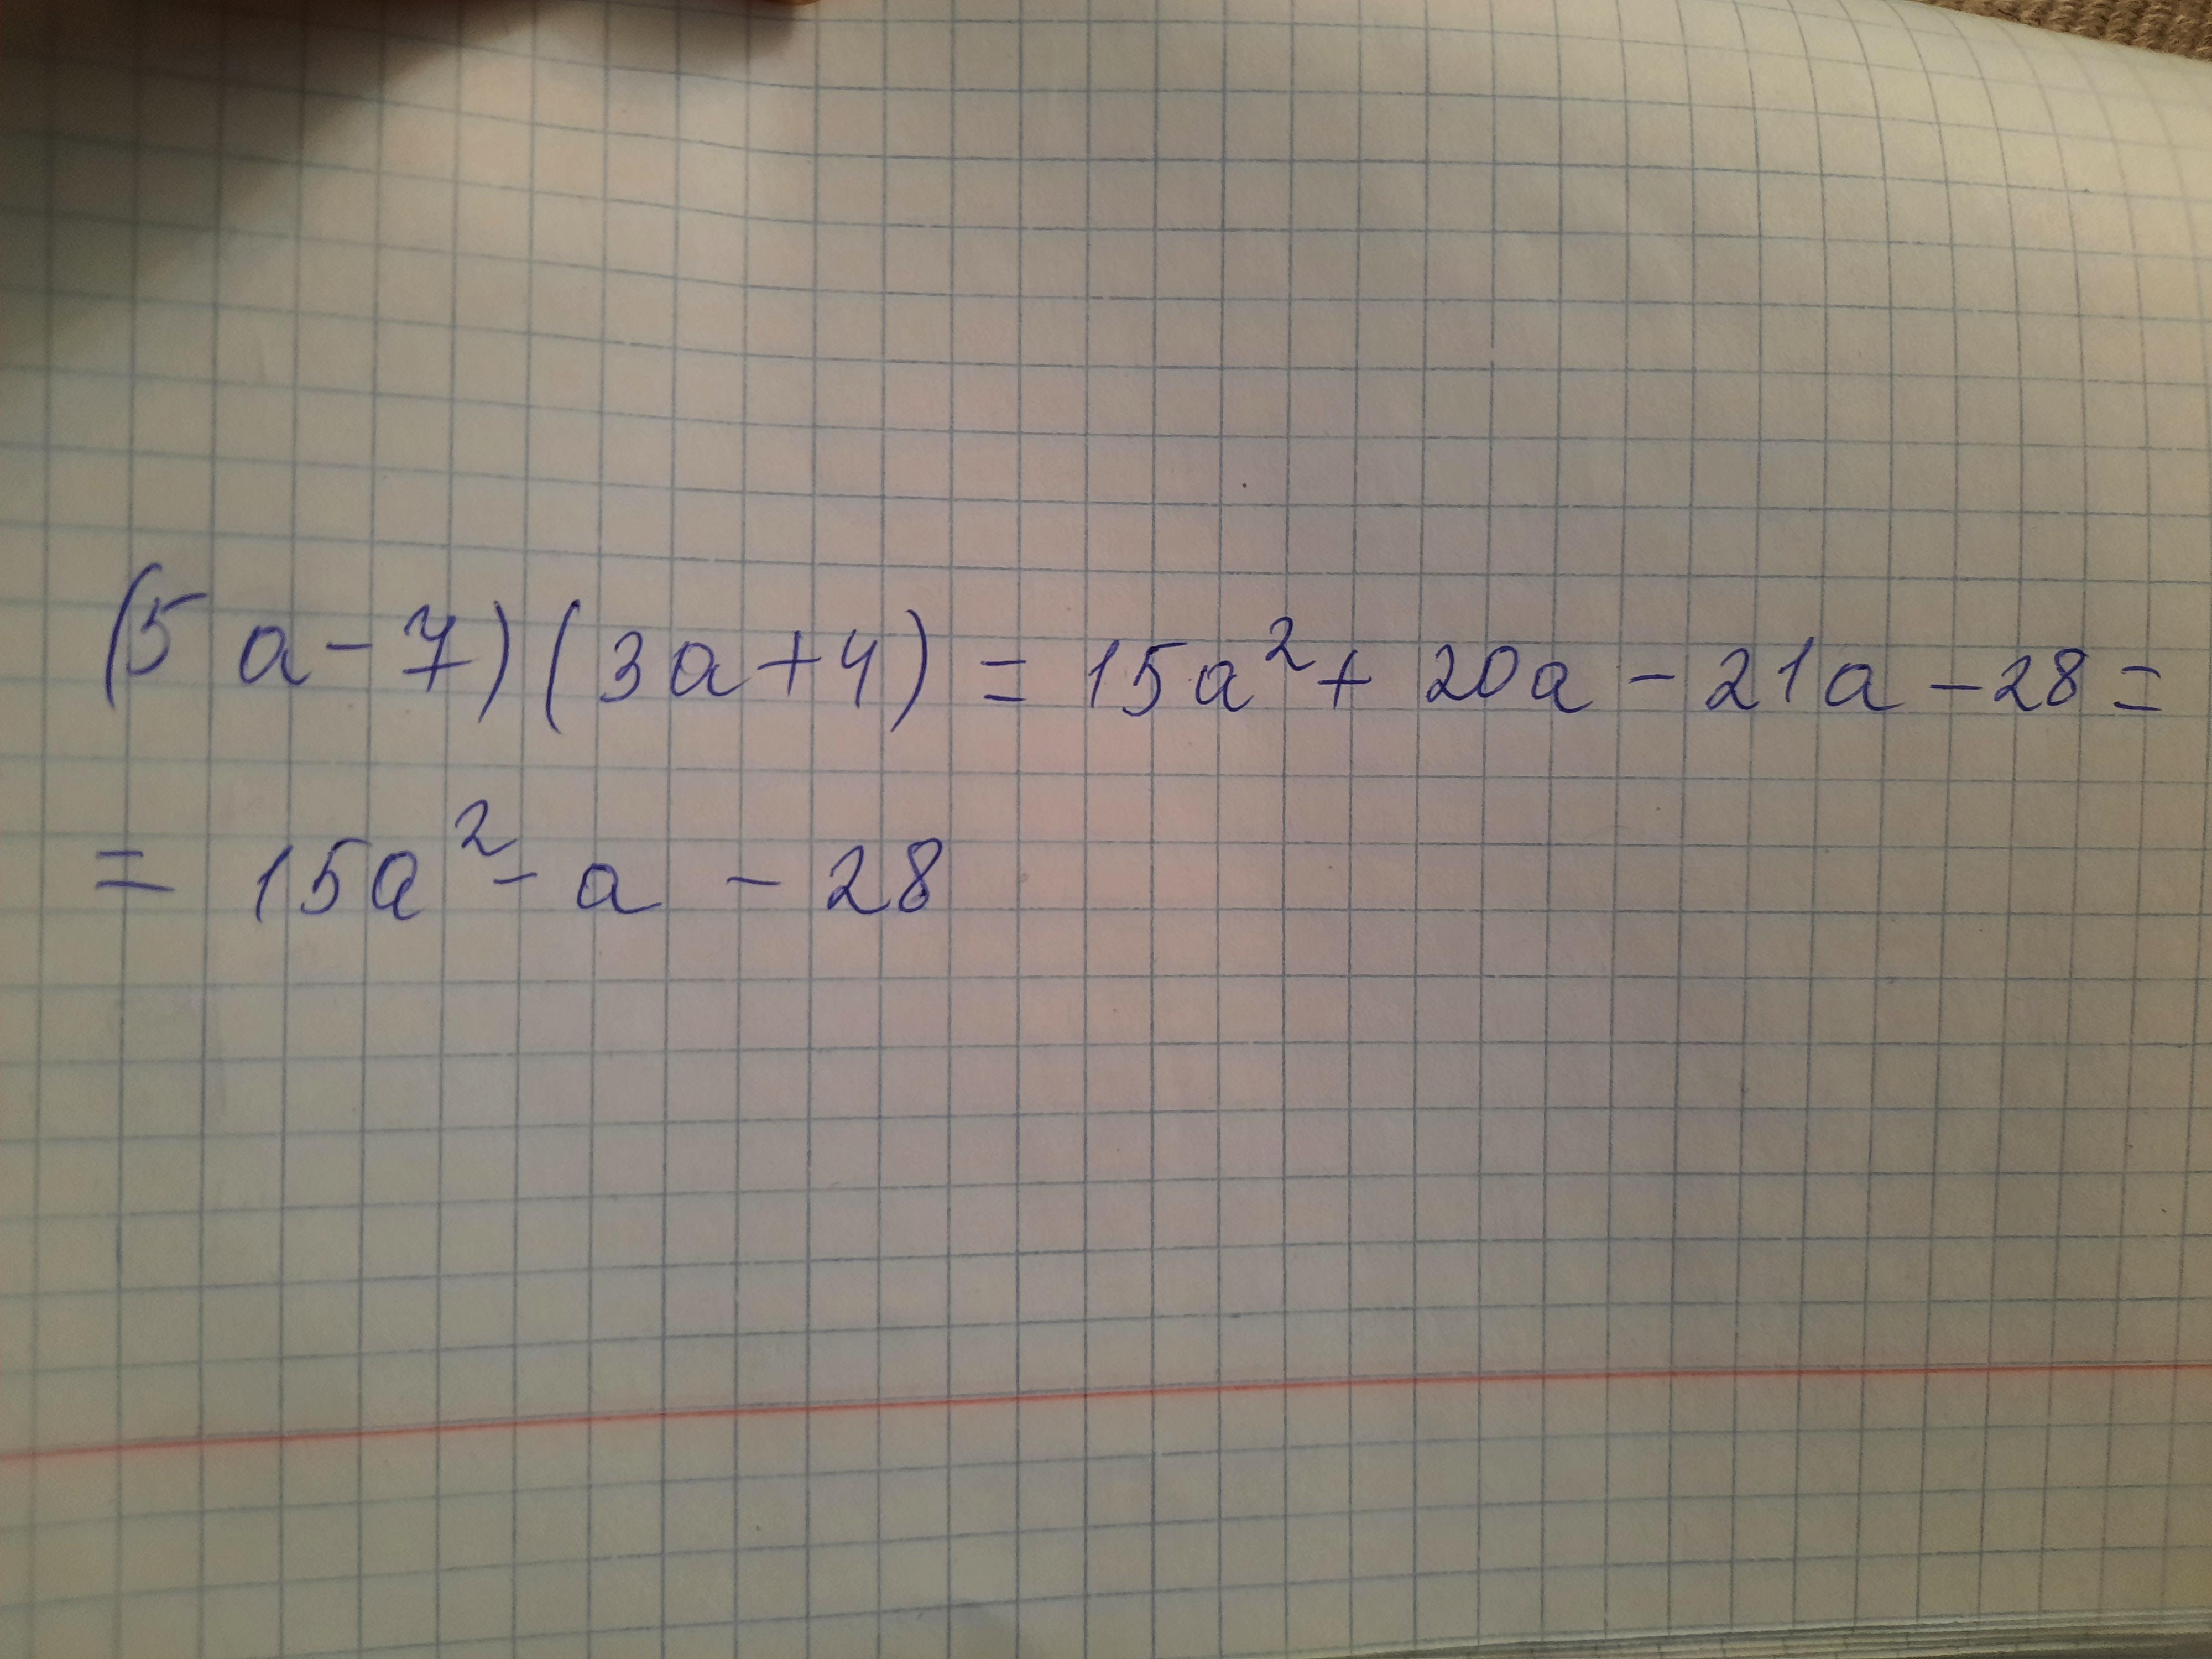 (5a-7)(3a+4) = 15a²+ 20a - 21a - 28 =
= 15a² - a - 28